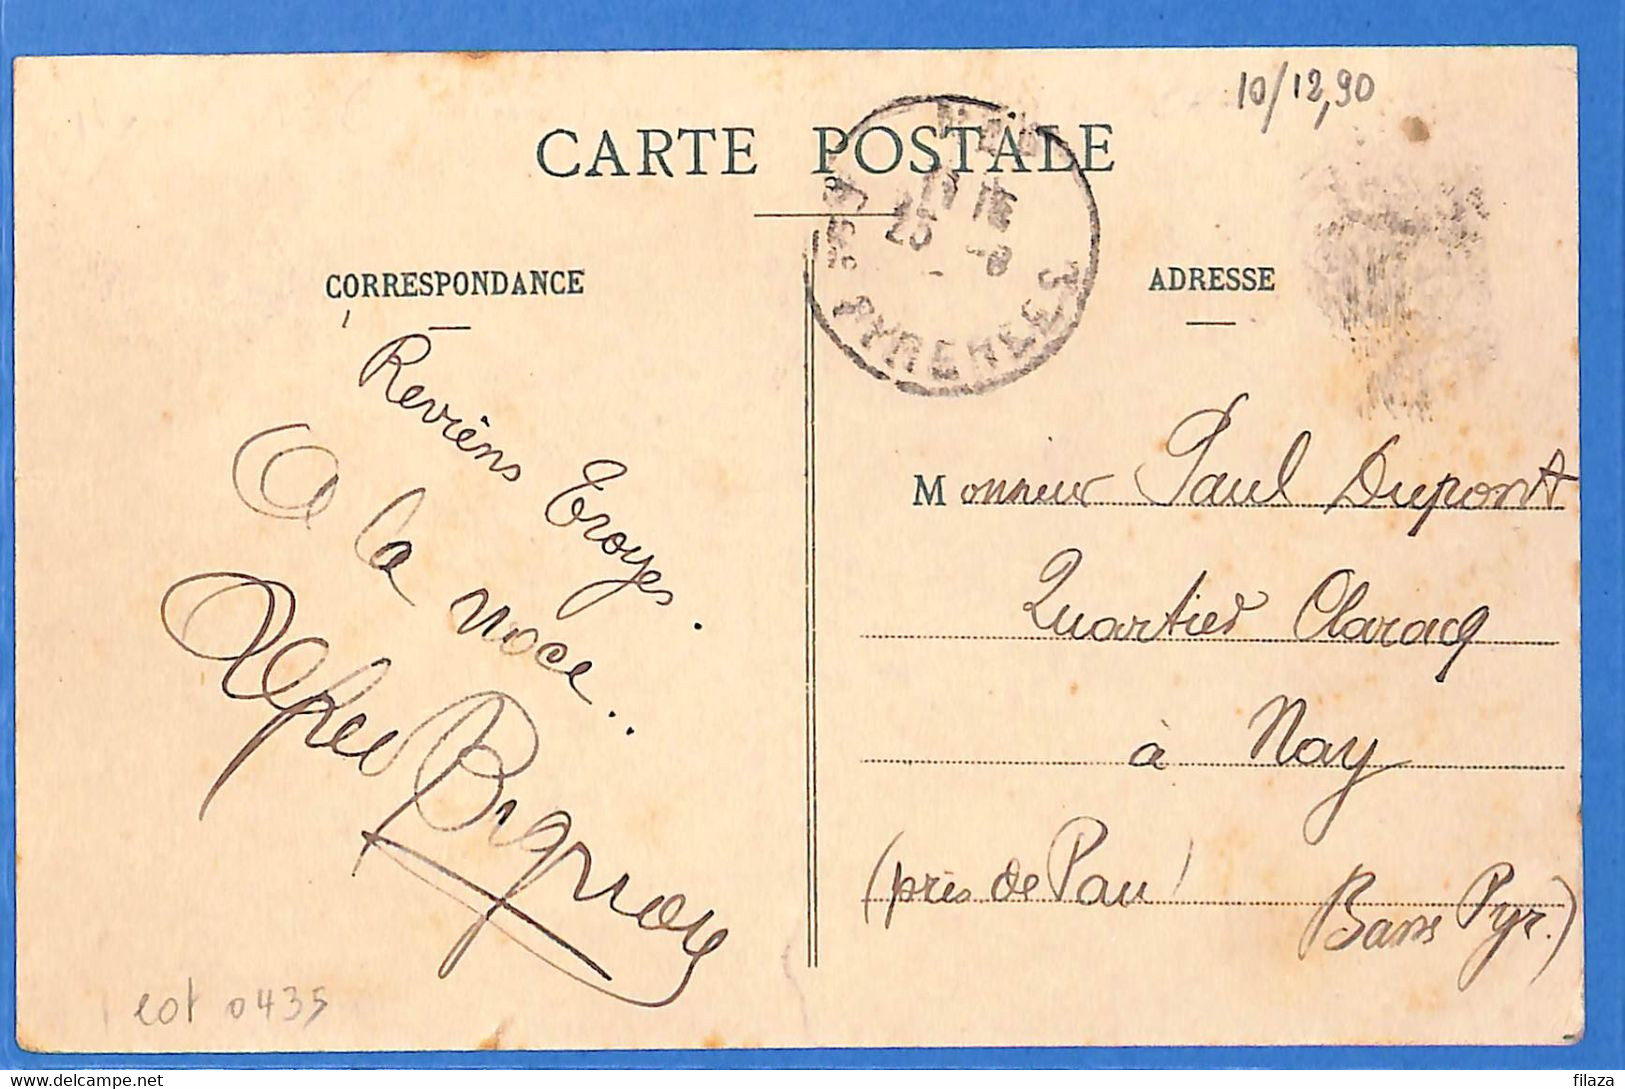 10/12,90
CARTE POSTALE
CORRESPONDANCE
ADRESSE
Reviens Troyes.
A la noce..
Alfred
Monsieur Paul Dupont
Quartier Claracq
à Nay
(près de Pau)
Bass Pyr.)
25 -8
PYRENEES
lot 0435
filaza